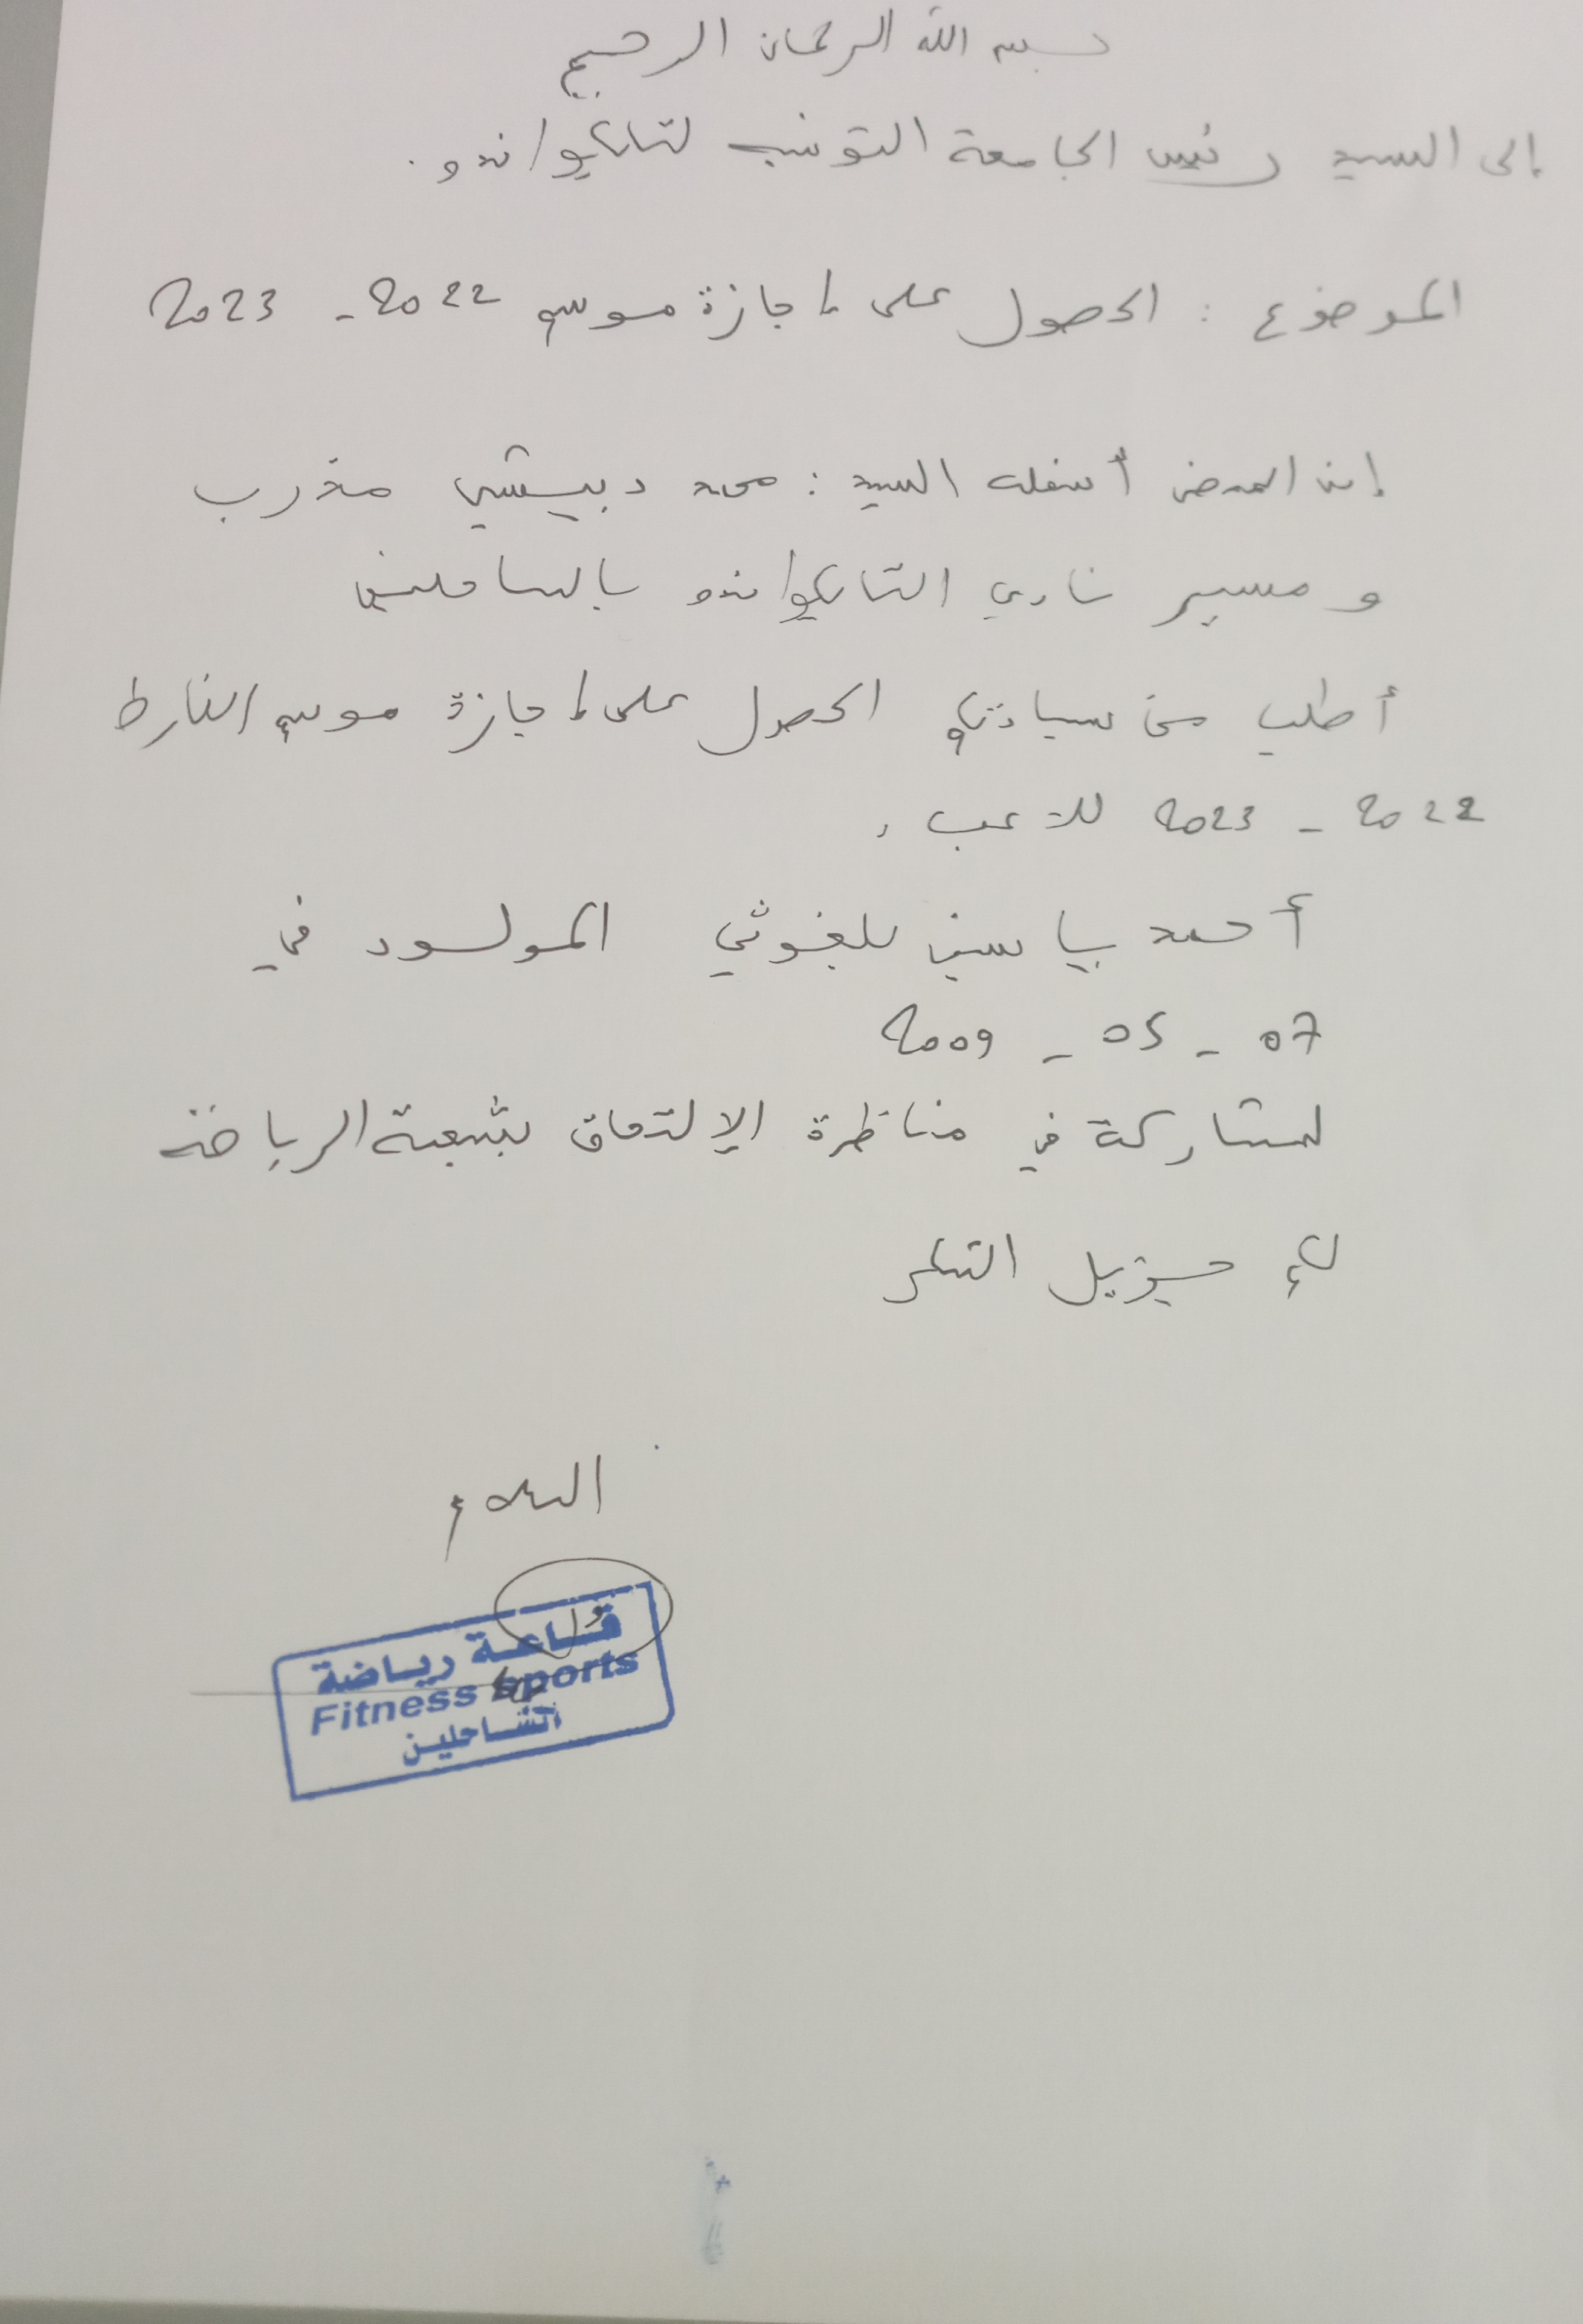 بسم الله الرحمان الرحيم
إلى السيد رئيس الجامعة التونسية لتايكواندو.
الموضوع : الحصول على اجازة موسم 2022 - 2023
إن الممضي أسفله السيد : محمد دبيشي مدرب
و مسير نادي التايكواندو بالساحلين
أطلب من سيادتكم الحصول على اجازة موسم الفارط
2022 - 2023 للاعب .
أحمد ياسين بلغوثي المولود في
07 - 05 - 2009
لمشاركة في مناظرة الإلتحاق بشعبة الرياضة
لكم جزيل الشكر
السلام
قاعة رياضة
Fitness sports
الساحلين